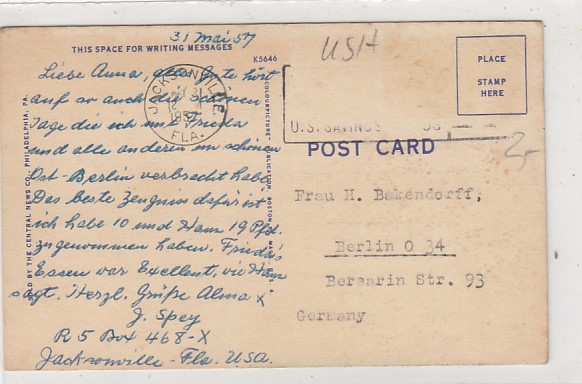 31 Mai 57
THIS SPACE FOR WRITING MESSAGES
K5646
Liebe Anna, alles Gute hört
auf so auch die schönen
Tage die ich mit Frieda
und alle anderen im schönen
Ost-Berlin verbracht habe
Das beste Zeugnis dafür ist
ich habe 10 und Hans 19 Pfd.
zugenommen haben. Frieda's
Essen war Exellent, wie Hans
sagt. Herzl. Grüße Alma &
J. Spey
R 5 Box 468-X
Jacksonville - Fla. U.S.A.
SOLD BY THE CENTRAL NEWS CO., PHILADELPHIA, PA.
JACKSONVILLE
1957
FLA.
U.S. SAVINGS
USA
PLACE
STAMP
HERE
POST CARD
Frau H. Bakendorff,
Berlin O 34
Bersarin Str. 93
Germany